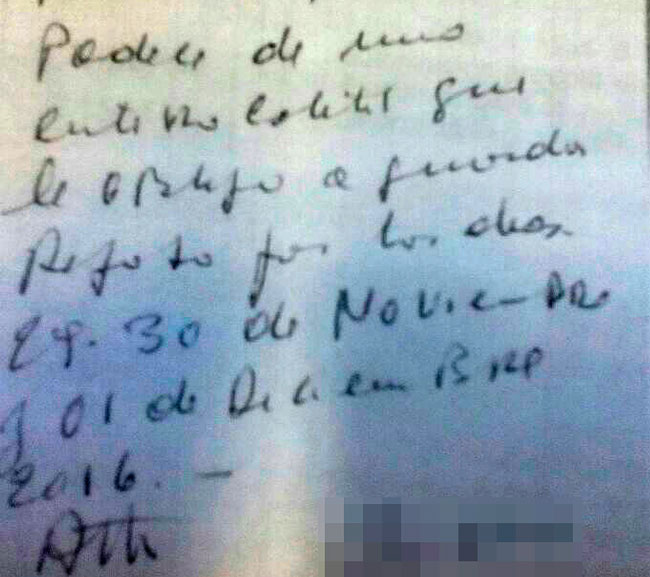 Padece de una
enterocolitis que
le obliga a guardar
Reposo por los dias
29. 30 de Noviembre
y 01 de Diciembre
2016. -
Att